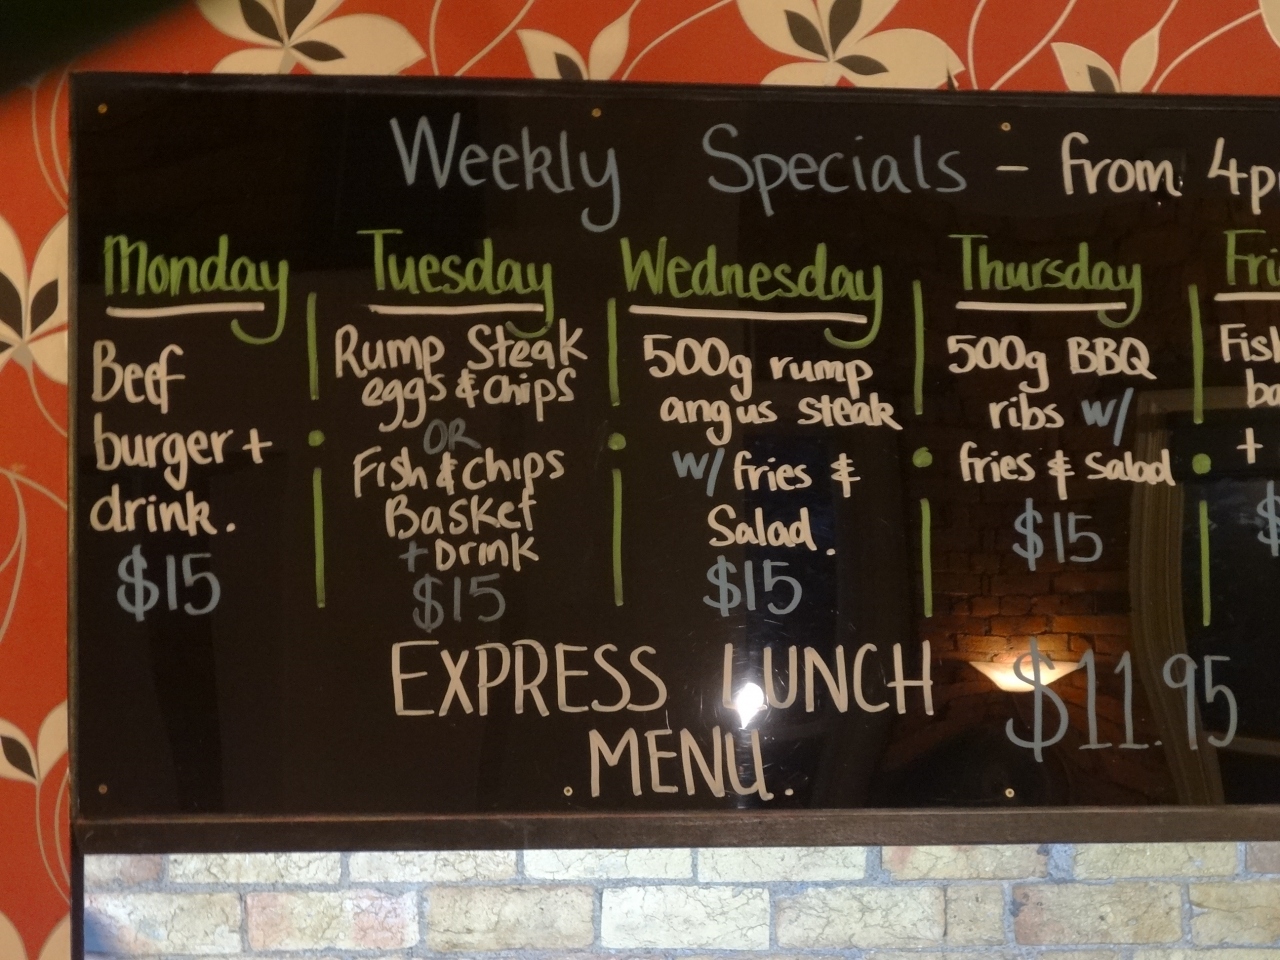 Weekly Specials - from 4p
Monday
Beef
burger +
drink.
$15
Tuesday
Rump Steak
eggs & chips
OR
Fish & Chips
Basket
+ Drink
$15
Wednesday
500g rump
angus steak
w/ fries &
Salad.
$15
Thursday
500g BBQ
ribs w/
fries & Salad
$15
Fri
Fish
ba
+
$
EXPRESS LUNCH $11.95
MENU.